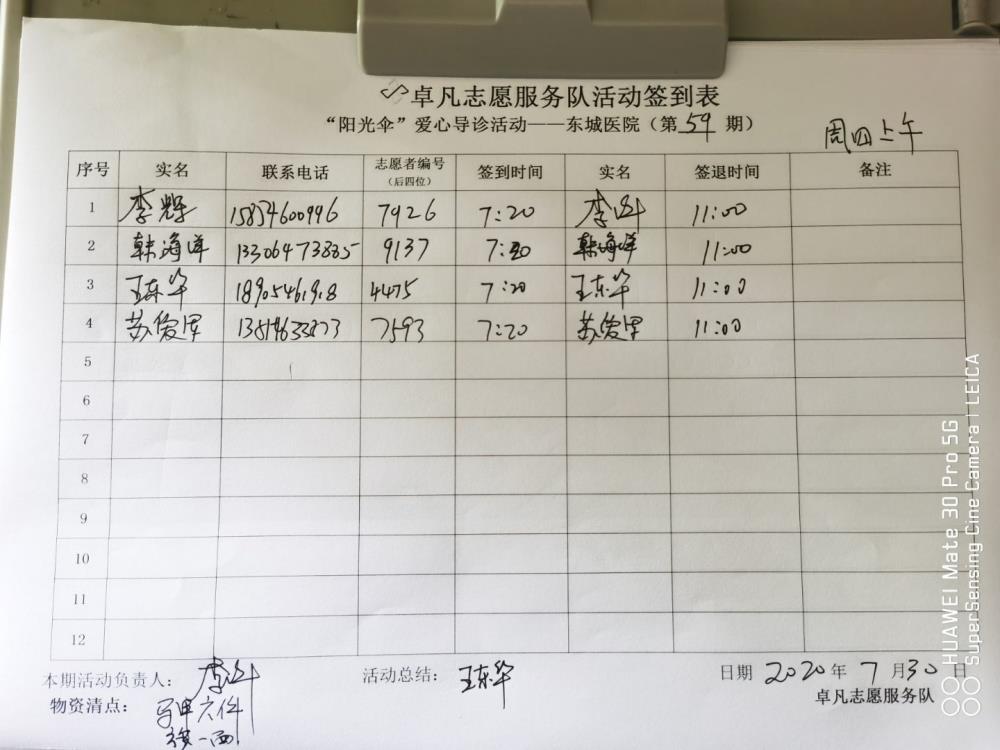 卓凡志愿服务队活动签到表
“阳光伞”爱心导诊活动——东城医院（第59期）
周四上午
序号 实名 联系电话 志愿者编号（后四位） 签到时间 实名 签退时间 备注
1 李辉 15854600996 7926 7:20 李辉 11:00
2 韩海洋 13306473885 9137 7:20 韩海洋 11:00
3 王东华 18905461918 4475 7:20 王东华 11:00
4 苏俊军 7593 7:20 苏俊军 11:00
5
6
7
8
9
10
11
12
本期活动负责人： 李辉 活动总结： 王东华 日期 2020年7月30日
物资清点： 马甲六件 卓凡志愿服务队
一面
HUAWEI Mate 30 Pro 5G
SuperSensing Cine Camera | LEICA